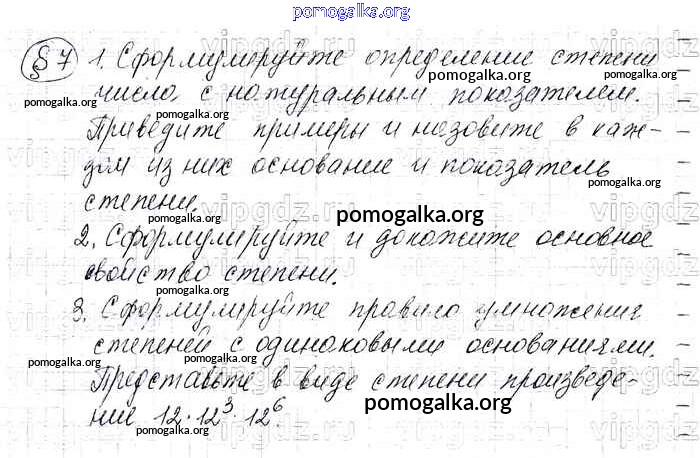 pomogalka.org
§ 7 1. Сформулируйте определение степени
pomogalka.org pomogalka.org
числа с натуральным показателем.
pomogalka.org
Приведите примеры и назовите в каж-
pomogalka.org
дом из них основание и показатель
pomogalka.org
степени.
pomogalka.org pomogalka.org
2. Сформулируйте и докажите основное
свойство степени.
pomogalka.org
3. Сформулируйте правило умножения
pomogalka.org
степеней с одинаковыми основаниями.
pomogalka.org pomogalka.org
Представьте в виде степени произведе-
pomogalka.org
ние 12·12³·12⁶.
pomogalka.org
vipgdz.ru